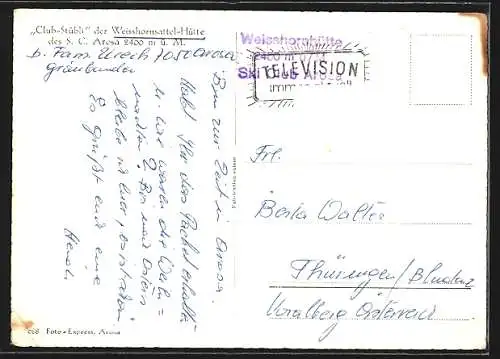 „Club-Stübli" der Weisshornsattel-Hütte
des S. C. Arosa 2400 m ü. M.
b. Fam. Urech 7050 Arosa
Graubünden
Bin zur Zeit in Arosa.
Habt Ihr das Packet erhalten
u. wie waren die Weih=
nachten? Bin nach Ostern
bleibe ich hier,
Es grüßt euch eine
Weisshornhütte
2400 m
Ski Club Arosa
TELEVISION
Frl.
Berta Walter
Thüringen/Bludenz
Voralberg Österreich
Foto-Express, Arosa